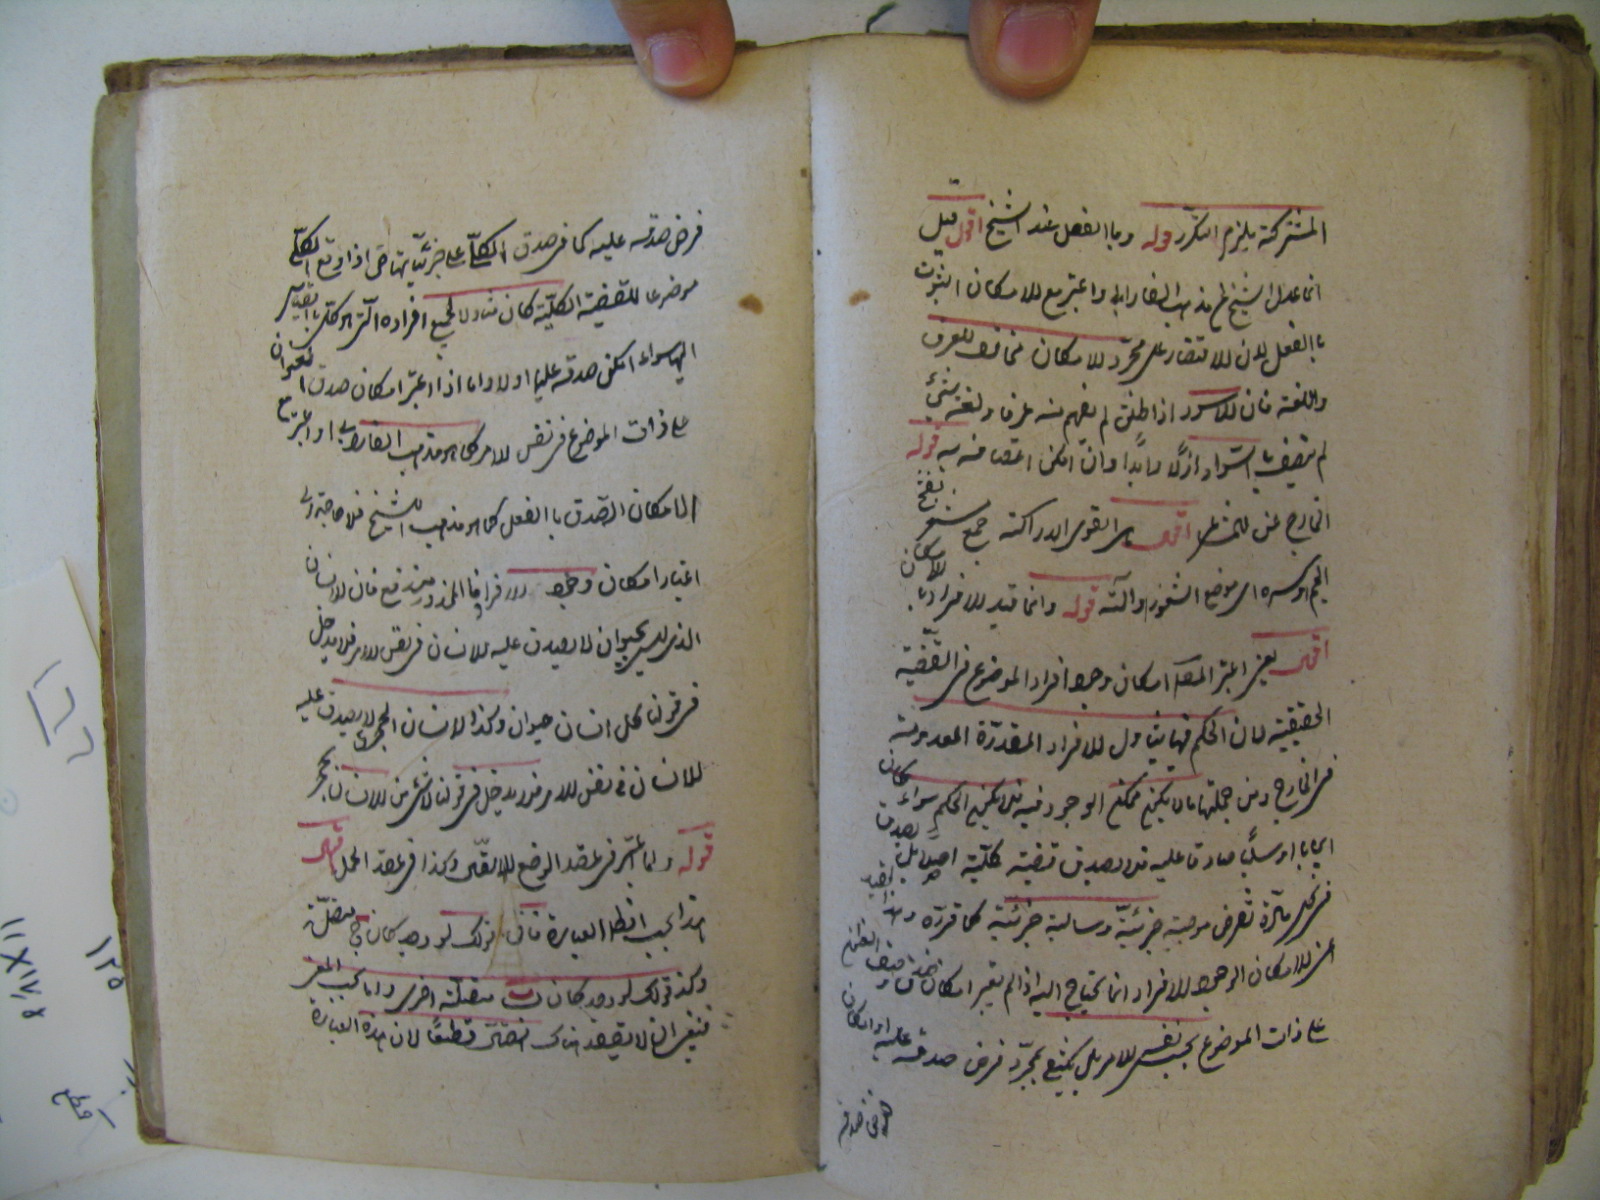 المشتركة يلزم التكرر قوله وبالفعل عند الشيخ اقول قيل
انما عدل الشيخ عن مذهب الفارابى واعتبر مع الامكان الثبوت
بالفعل لان الاقتصار على مجرد الامكان مخالف للعرف
واللغة فان الاسود اذا اطلق لم يفهم منه عرفا ولغة شىء
لم يتصف بالسواد ازلا وابدا وان امكن اتصافه به قوله
الخارج عن المشاعر اقول اى القوى الدراكة جمع مشعر بفتح
الميم او كسره اى موضع الشعور او آلته قوله وانما قيد الافراد بالامكان
اقول يعنى اعتبر امكان وجود افراد الموضوع فى القضية
الحقيقية لان الحكم فيها يتناول الافراد المقدرة المعدومة
فى الخارج ومن جملتها ما لا يكون ممكن الوجود فيه فلا يكون الحكم سواء كان
ايجابا او سلبا صادقا عليه فلا يصدق قضية كلية اصلا بل يصدق
فى كل مادة تفرض موجبة جزئية وسالبة جزئية كما قرره وهذا القيد
اعنى الامكان الوجود للافراد انما يحتاج اليه اذا لم يعتبر امكان صدق وصف العنوان
على ذات الموضوع بحسب نفس الامر بل يكتفى بمجرد فرض صدقه عليه او امكان
فرض صدقه
فرض صدقه عليه كما فى صدق الكلى على جزئياتها حتى اذا وقع الكلى
موضوعا للقضية الكلية كان متناولا لجميع افراده التى هو كلى بالقياس
اليها سواء امكن صدقه عليها او لا واما اذا اعتبر امكان صدق العنوان
على ذات الموضوع فى نفس الامر كما هو مذهب الفارابى او اعتبر مع
الامكان الصدق بالفعل كما هو مذهب الشيخ فلا حاجة الى
اعتبار امكان وجود الافراد فان الانسان
الذى ليس بحيوان لا يصدق عليه الانسان فى نفس الامر فلا يدخل
فى قولنا كل انسان حيوان وكذا الانسان الحجر لا يصدق عليه
الانسان فى نفس الامر فلا يدخل فى قولنا لا شىء من الانسان بحجر
قوله ولما اعتبر فى عقد الوضع الاتصال وكذا فى عقد الحمل اقول
هذا بحسب العبارة فان قولك لو وجد كان ج متصلة
وكذا قولك لو وجد كان ب متصلة اخرى واما بحسب المعنى
فينبغى ان لا يقصد هناك اتصال قطعا لان هذه العبارة